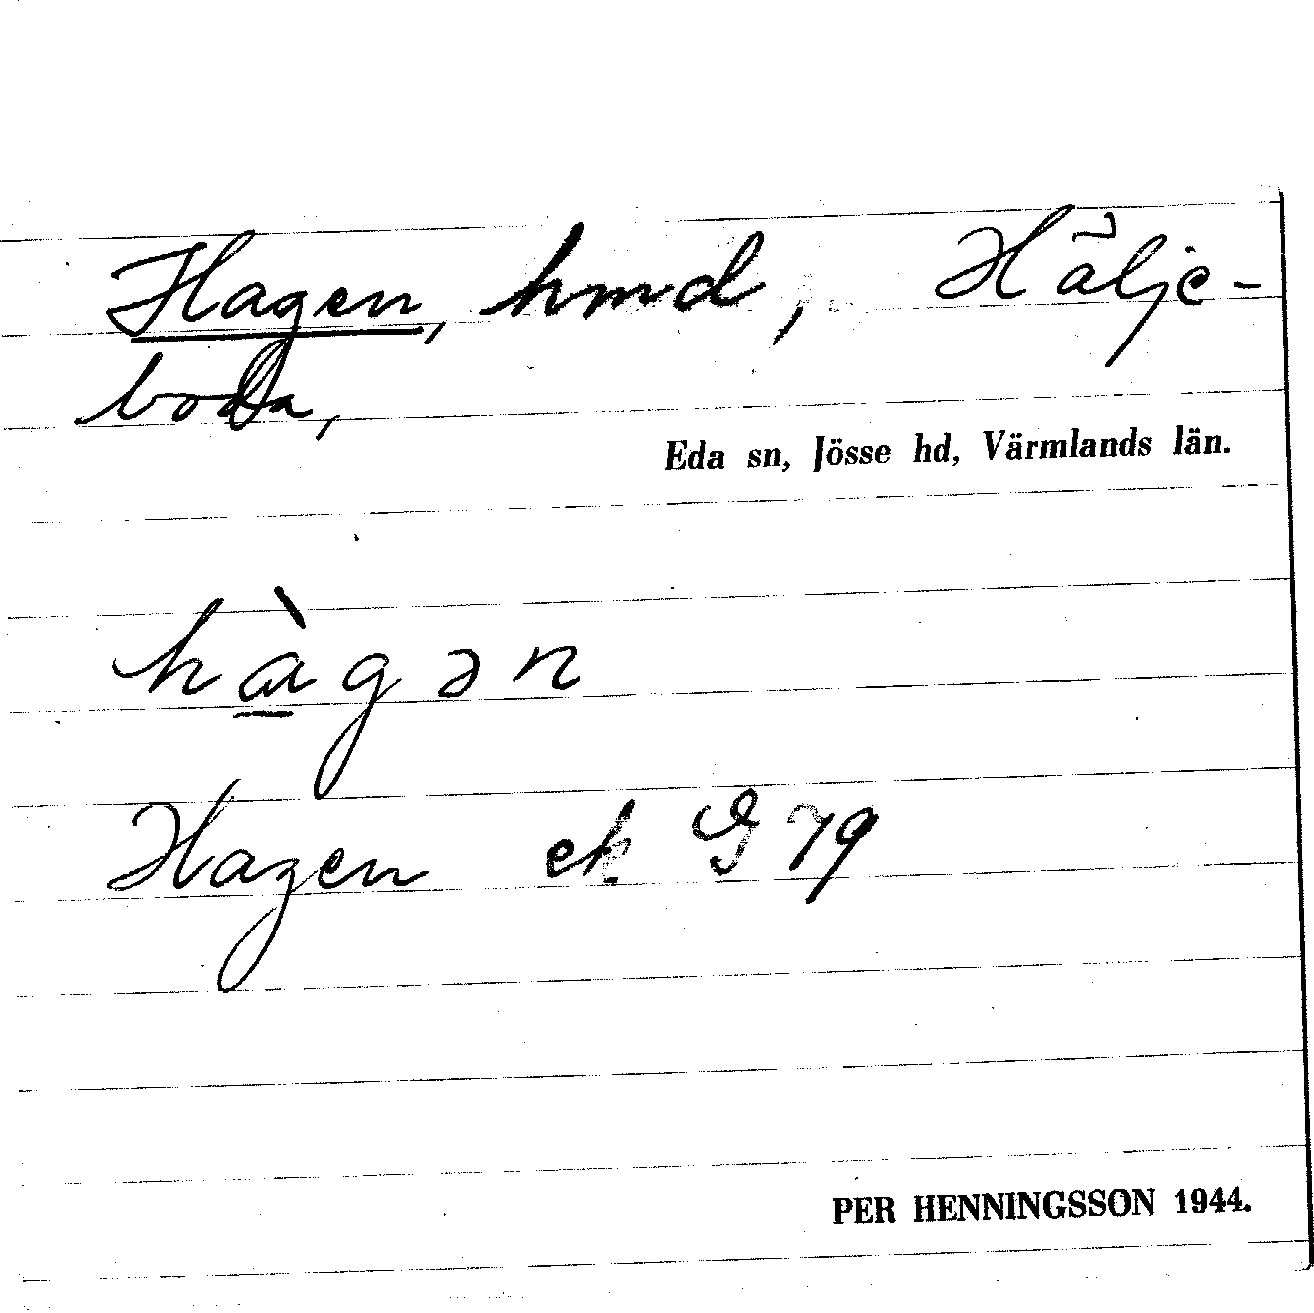 Hagen, hmd, Hälje-
boda,
Eda sn, Jösse hd, Värmlands län.
hàgən
Hagen ek G 79
PER HENNINGSSON 1944.